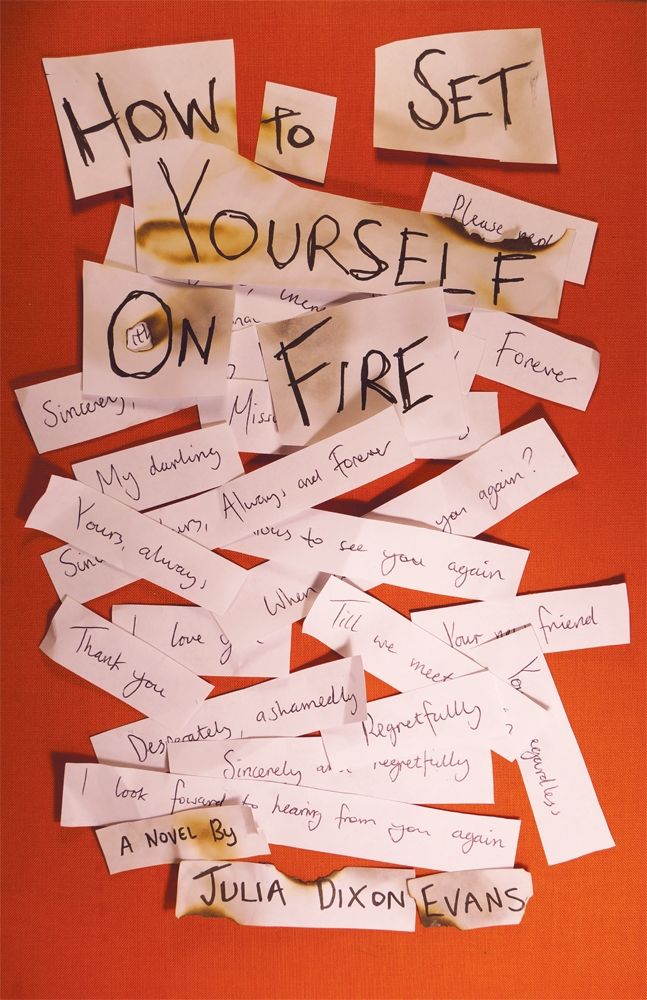 HOW TO SET
YOURSELF
ON FIRE
Please
Forever
Sincerely,
My darling
Always and Forever
Yours, always,
you again?
to see you again
When
I love
Till we meet
Your friend
Thank you
Desperately, ashamedly
Regretfullly
regardless
Sincerely regretfully
I look foward to hearing from you again
A NOVEL By
JULIA DIXON EVANS